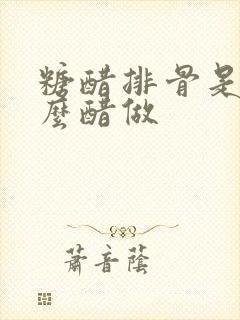 糖醋排骨是
麼醋做
蕭音蔭